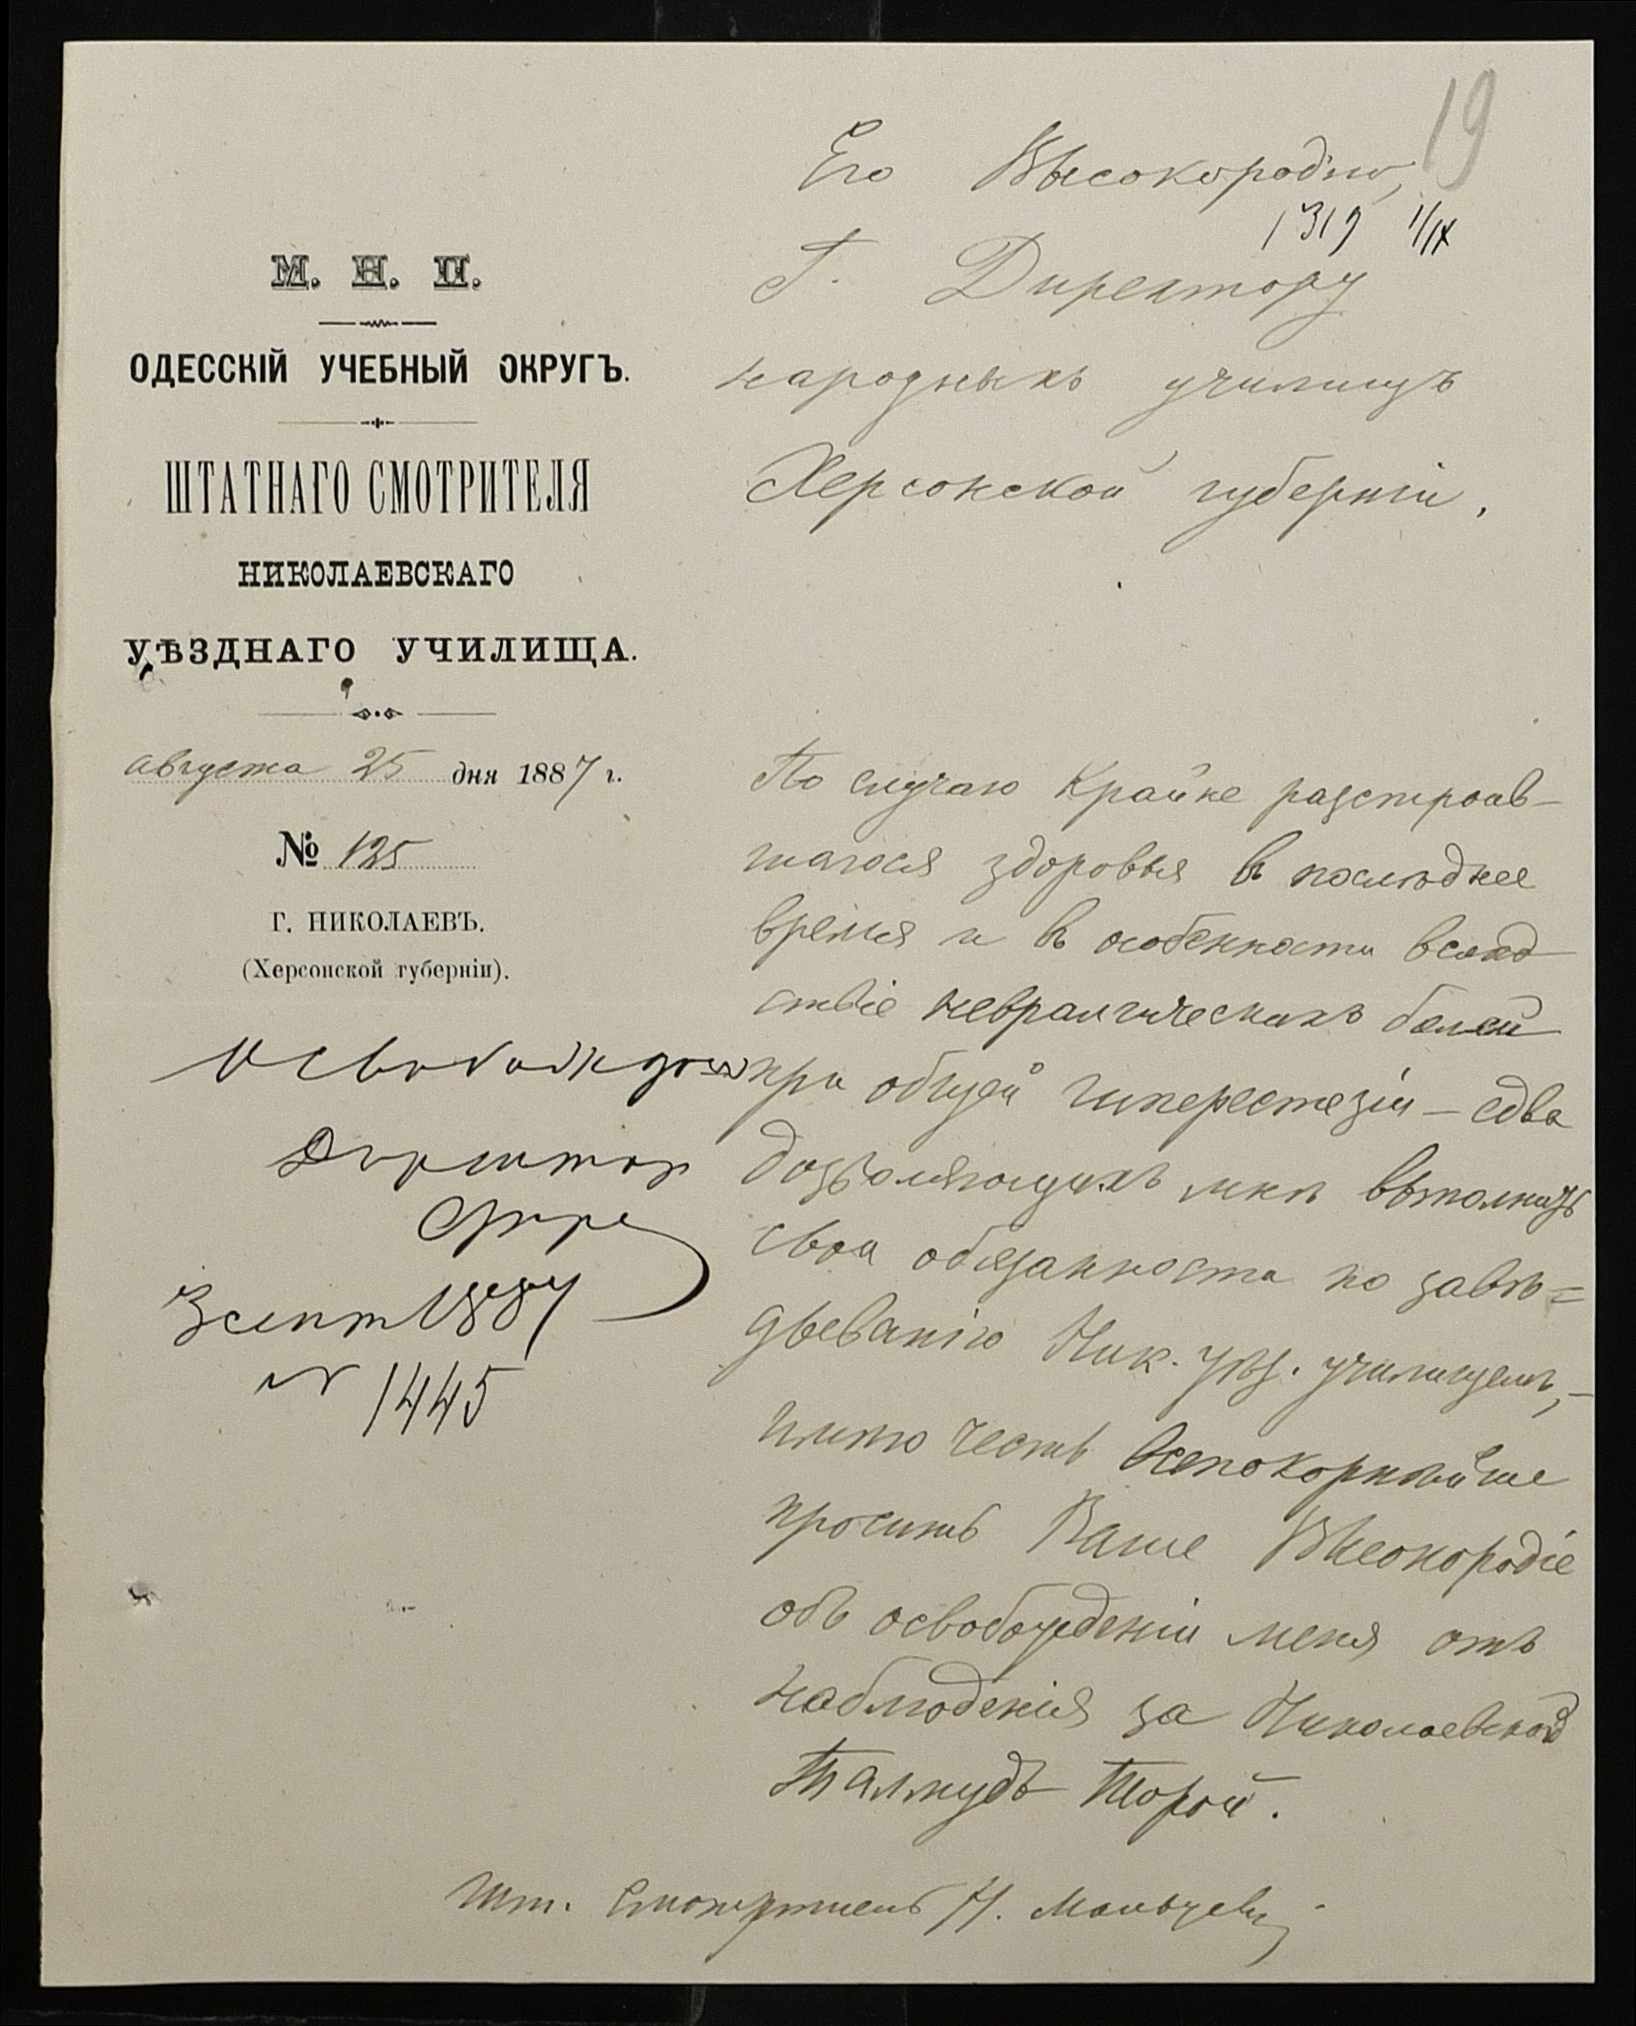 19
Его Высокородію,
1319 1/IX
Г. Директору
народныхъ училищъ
Херсонской губерніи.
М. Н. П.
ОДЕССКІЙ УЧЕБНЫЙ ОКРУГЪ.
ШТАТНАГО СМОТРИТЕЛЯ
НИКОЛАЕВСКАГО
УѢЗДНАГО УЧИЛИЩА.
августа 25 дня 1887 г.
№ 125
Г. НИКОЛАЕВЪ.
(Херсонской губерніи).
По случаю крайне разстроив-
шагося здоровья въ послѣднее
время и въ особенности вслѣд-
ствіе невралгическихъ болей
при общей гиперестезіи – едва
дозволяющихъ мнѣ выполнять
свои обязанности по завѣ=
дыванію Ник. уѣз. училищемъ, –
имѣю честь всепокорнѣйше
просить Ваше Высокородіе
объ освобожденіи меня отъ
наблюденія за Николаевской
Талмудъ Торой.
Шт. Смотритель Н. Мальцевъ
Директор
3 сент 1887
№ 1445